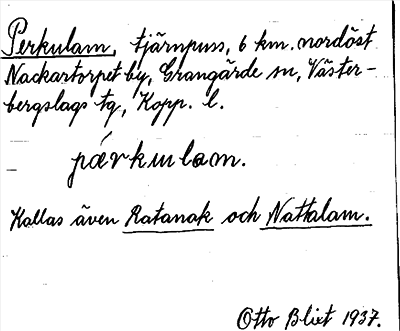 Perkulam, tjärnpuss, 6 km. nordöst
Nackartorpet by, Grangärde sn, Väster-
bergslags tg, Kopp. l.
pærkulam.
Kallas även Ratanak och Nattalam.
Otto Blixt 1937.